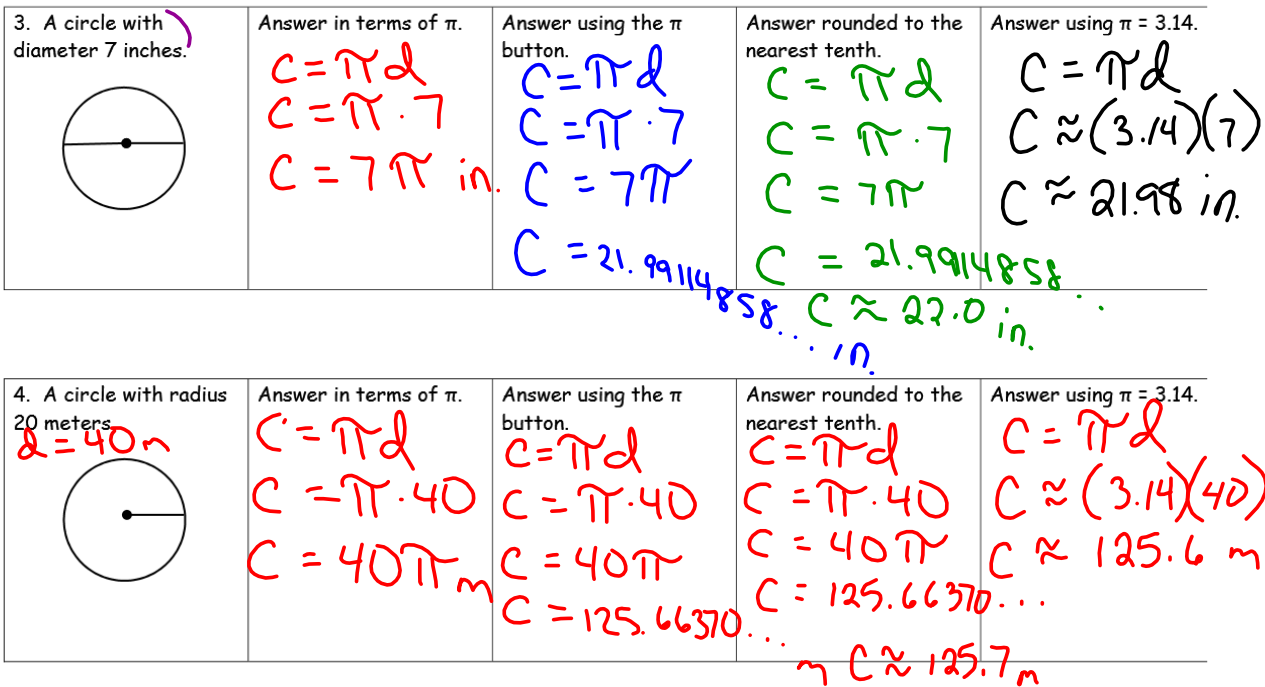 3. A circle with
diameter 7 inches.
Answer in terms of π.
C = πd
C = π · 7
C = 7π in.
Answer using the π
button.
C = πd
C = π · 7
C = 7π
C = 21.99114858... in.
Answer rounded to the
nearest tenth.
C = πd
C = π · 7
C = 7π
C = 21.99114858...
C ≈ 22.0 in.
Answer using π = 3.14.
C = πd
C ≈ (3.14)(7)
C ≈ 21.98 in.
4. A circle with radius
20 meters.
d = 40 m
Answer in terms of π.
C = πd
C = π · 40
C = 40π m
Answer using the π
button.
C = πd
C = π · 40
C = 40π
C = 125.66370... m
Answer rounded to the
nearest tenth.
C = πd
C = π · 40
C = 40π
C = 125.66370...
C ≈ 125.7 m
Answer using π = 3.14.
C = πd
C ≈ (3.14)(40)
C ≈ 125.6 m